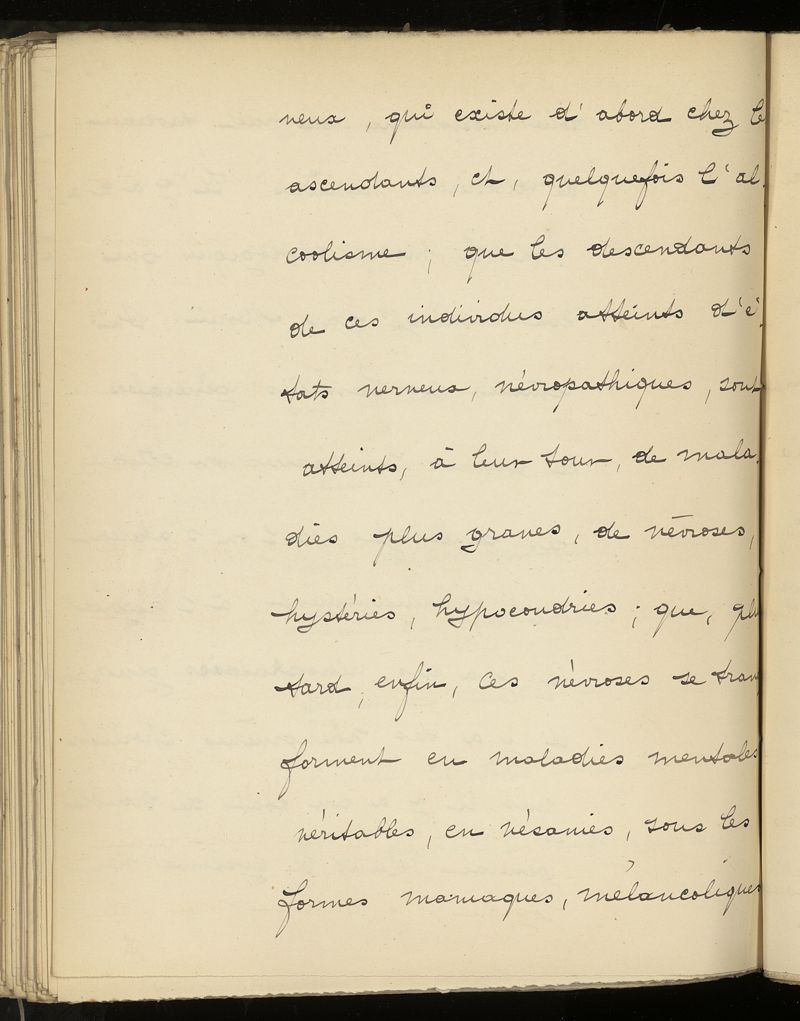 veux, qui existe d'abord chez le
ascendants, et, quelquefois l'al-
coolisme ; que les descendants
de ces individus atteints d'é-
tats nerveux, névropathiques, sont
atteints, à leur tour, de mala-
dies plus graves, de névroses,
hystéries, hypocondries ; que, plu
tard, enfin, ces névroses se tran
forment en maladies mentales
véritables, en vésanies, sous les
formes maniaques, mélancoliques